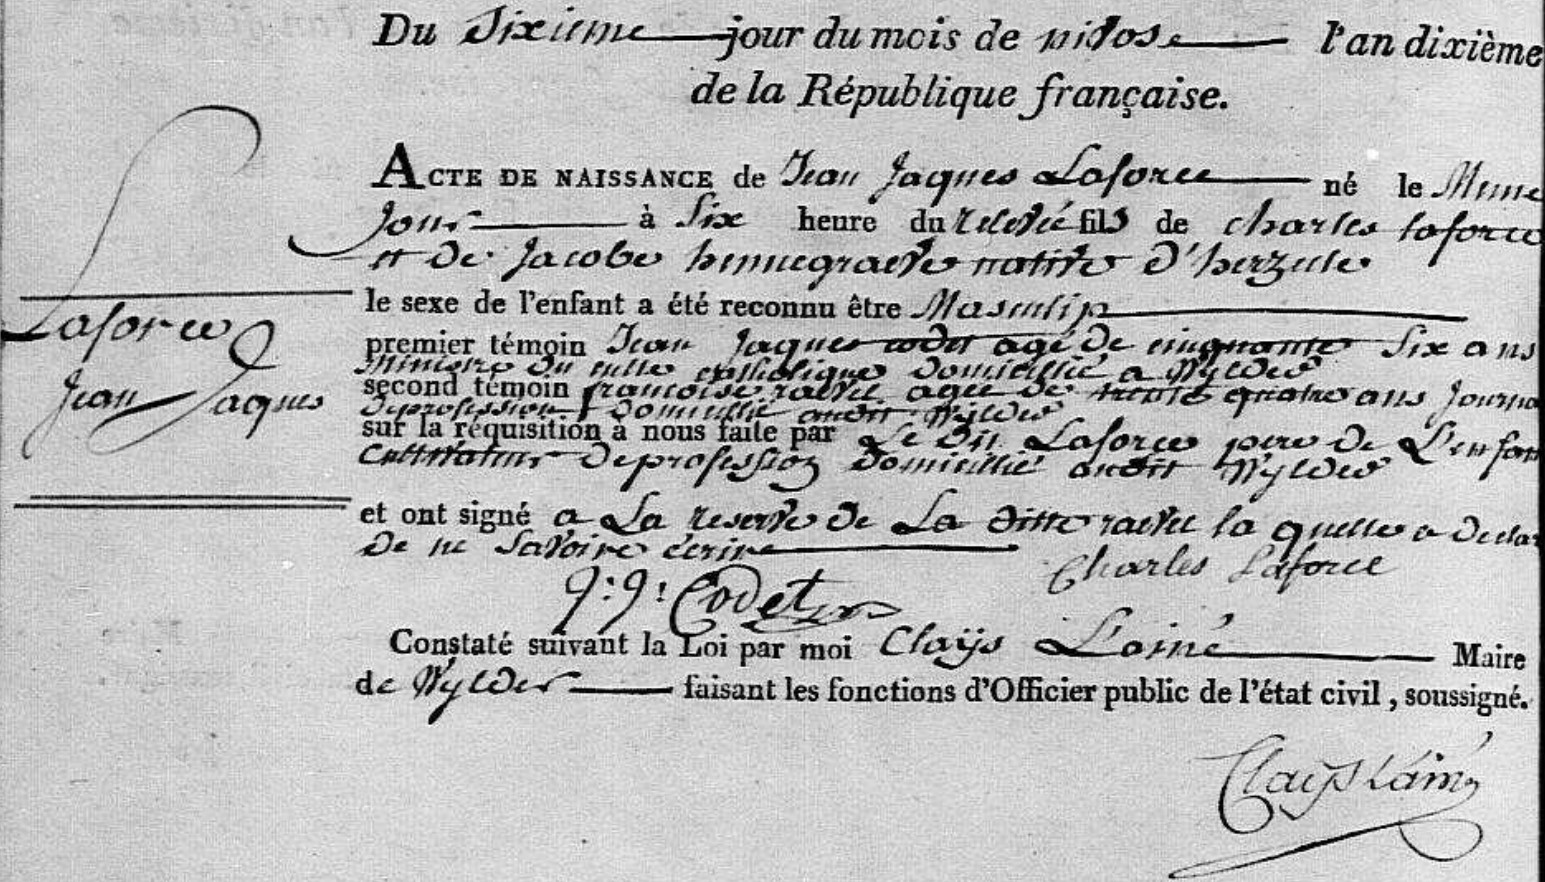 Du Sixieme jour du mois de nivose l'an dixième
de la République française.
ACTE DE NAISSANCE de Jean Jaques Laforce né le Meme
jour à Six heure du relevé fils de charles laforce
et de Jacoba hennegraeve native d'herzeele
le sexe de l'enfant a été reconnu être Masculin
Laforce
Jean Jaques
premier témoin Jean Jaques codet agé de cinquante Six ans
Ministre du culte catholique domicillié a Wylder
second témoin francoise ravel agée de trente quatre ans Journa
de profession domicillié audit Wylder
sur la réquisition à nous faite par Le dit Laforce pere de L'enfan
Cultivateur de profession domicillié audit Wylder
et ont signé a La reserve de La ditte ravel la quelle a declar
de ne Savoire écrire
Charles Laforce
J: J: Codet
Constaté suivant la Loi par moi Claÿs L'ainé Maire
de Wylder faisant les fonctions d'Officier public de l'état civil, soussigné.
Claÿs L'ainé